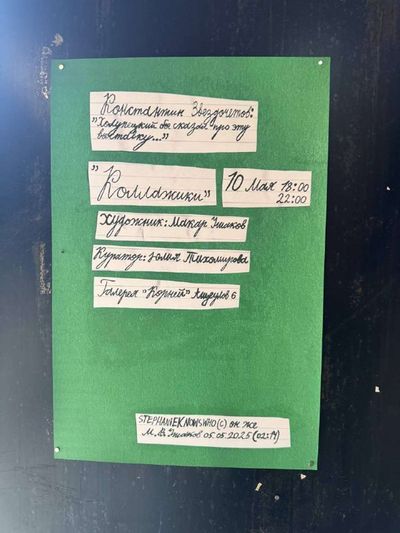 Константин Звездочетов:
"Холупецкий бы сказал про эту
выставку..."
"Коллажики"
10 Мая 18:00
22:00
Художник: Макар Ушаков
Куратор: Юлия Тихомирова
Галерея "Корней" 6
STEPHANIEKNOWSWHO(C) он же
М. В. Ушаков 05.05.2025 (02:19)